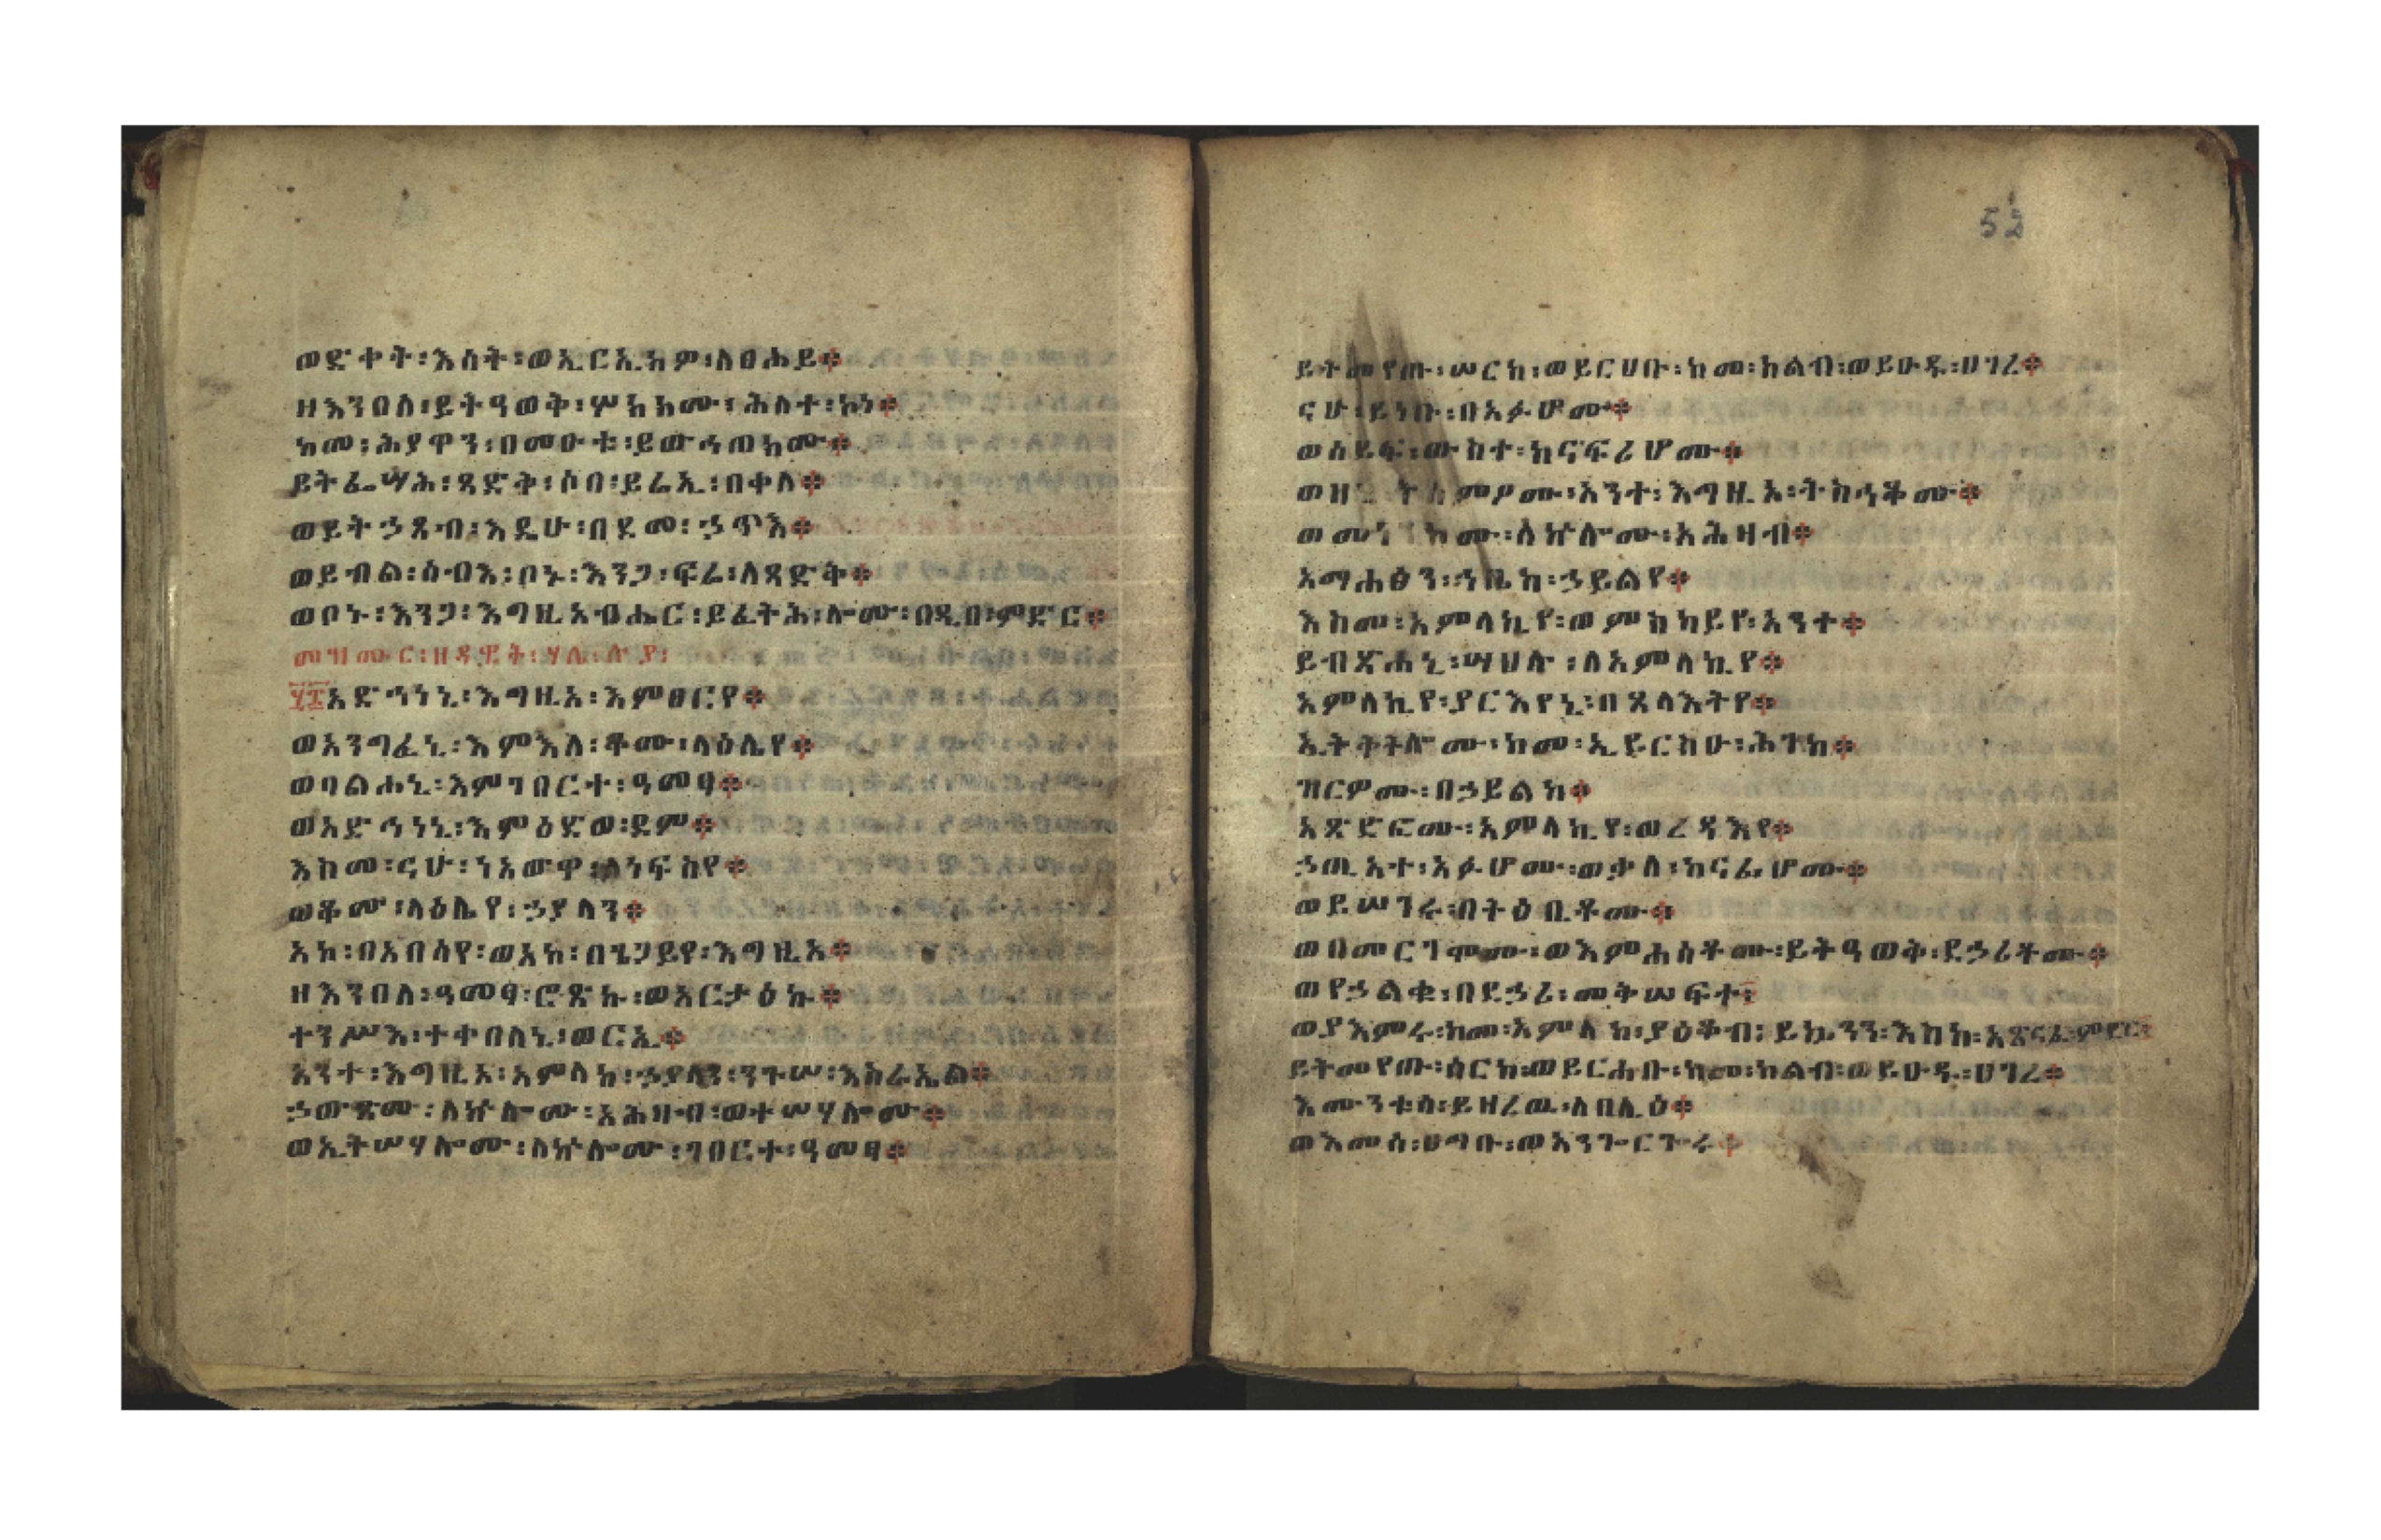 ወድቀት፡እሳት፡ወኢርኢክዎ፡ለፀሐይ፨
ዘእንበለ፡ይትዓወቅ፡ሦክክሙ፡ሕለተ፡ኮነ፨
ከመ፡ሕያዋን፡በመዐቱ፡ይውኅጠክሙ፨
ይትፌሣሕ፡ጻድቅ፡ሶበ፡ይሬኢ፡በቀለ፨
ወይትኃፀብ፡እዴሁ፡በደመ፡ኃጥእ፨
ወይብል፡ሰብእ፡ቦኑ፡እንጋ፡ፍሬ፡ለጻድቅ፨
ወቦኑ፡እንጋ፡እግዚአብሔር፡ይፈትሕ፡ሎሙ፡በዲበ፡ምድር፨
መዝሙር፡ዘዳዊት፡ሃሌ፡ሉያ፡
፶፰አድኅነኒ፡እግዚኦ፡እምፀርየ፨
ወአንግፈኒ፡እምእለ፡ቆሙ፡ላዕሌየ፨
ወባልሐኒ፡እምገበርተ፡ዓመፃ፨
ወአድኅነኒ፡እምዕድወ፡ደም፨
እስመ፡ናሁ፡ነአወዋ፡ለነፍስየ፨
ወቆሙ፡ላዕሌየ፡ኃያላን፨
አኮ፡በአበሳየ፡ወአኮ፡በጌጋይየ፡እግዚኦ፨
ዘእንበለ፡ዓመፃ፡ሮጽኩ፡ወአርታዕኩ፨
ተንሥእ፡ተቀበለኒ፡ወርኢ፨
አንተ፡እግዚኦ፡አምላከ፡ኃያላን፡ንጉሠ፡እስራኤል፨
ኃውጽሙ፡ለኵሎሙ፡አሕዛብ፡ወተሣሃሎሙ፨
ወኢትሣሃሎሙ፡ለኵሎሙ፡ገበርተ፡ዓመፃ፨
52
ይትመየጡ፡ሠርከ፡ወይርሀቡ፡ከመ፡ከልብ፡ወይዑዱ፡ሀገረ፨
ናሁ፡ይነቡ፡በአፉሆሙ፨
ወሰይፍ፡ውስተ፡ከናፍሪሆሙ፨
አንተ፡እግዚኦ፡ትስኅቆሙ፨
ለኵሎሙ፡አሕዛብ፨
አማሐፅን፡ኀቤከ፡ኃይልየ፨
እስመ፡አምላኪየ፡ወምስካይየ፡አንተ፨
ይብጻሐኒ፡ሣህሉ፡ለአምላኪየ፨
አምላኪየ፡ያርእየኒ፡በጸላእትየ፨
ኢትቅትሎሙ፡ከመ፡ኢይርስዑ፡ሕገከ፨
ዝርዎሙ፡በኃይልከ፨
አጽድፎሙ፡አምላኪየ፡ወረዳእየ፨
ኃጢአተ፡አፉሆሙ፡ወቃለ፡ከናፌሆሙ፨
ወይሠገሩ፡በትዕቢቶሙ፨
ወበመርገሞሙ፡ወእምሐሰቶሙ፡ይትዓወቅ፡ደኃሪቶሙ፨
ወየኃልቁ፡በደኃሪ፡መቅሠፍት፡
ወያእምሩ፡ከመ፡አምላከ፡ያዕቆብ፡ይኴንን፡እስከ፡አጽናፈ፡ምድር፡
ይትመየጡ፡ሰርከ፡ወይርሐቡ፡ከመ፡ከልብ፡ወይዑዱ፡ሀገረ፨
እሙንቱሰ፡ይዘረዉ፡ለበሊዕ፨
ወእመሰ፡ፀግቡ፡ወአንጐርጐሩ፨